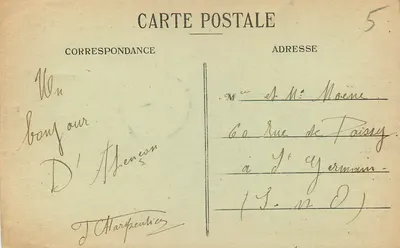 CARTE POSTALE
5
CORRESPONDANCE
ADRESSE
Un
bonjour
D'Alençon
J Charpentier
Mme et Mr Moëne
60 Rue de Poissy
à St Germain
(S. et O)